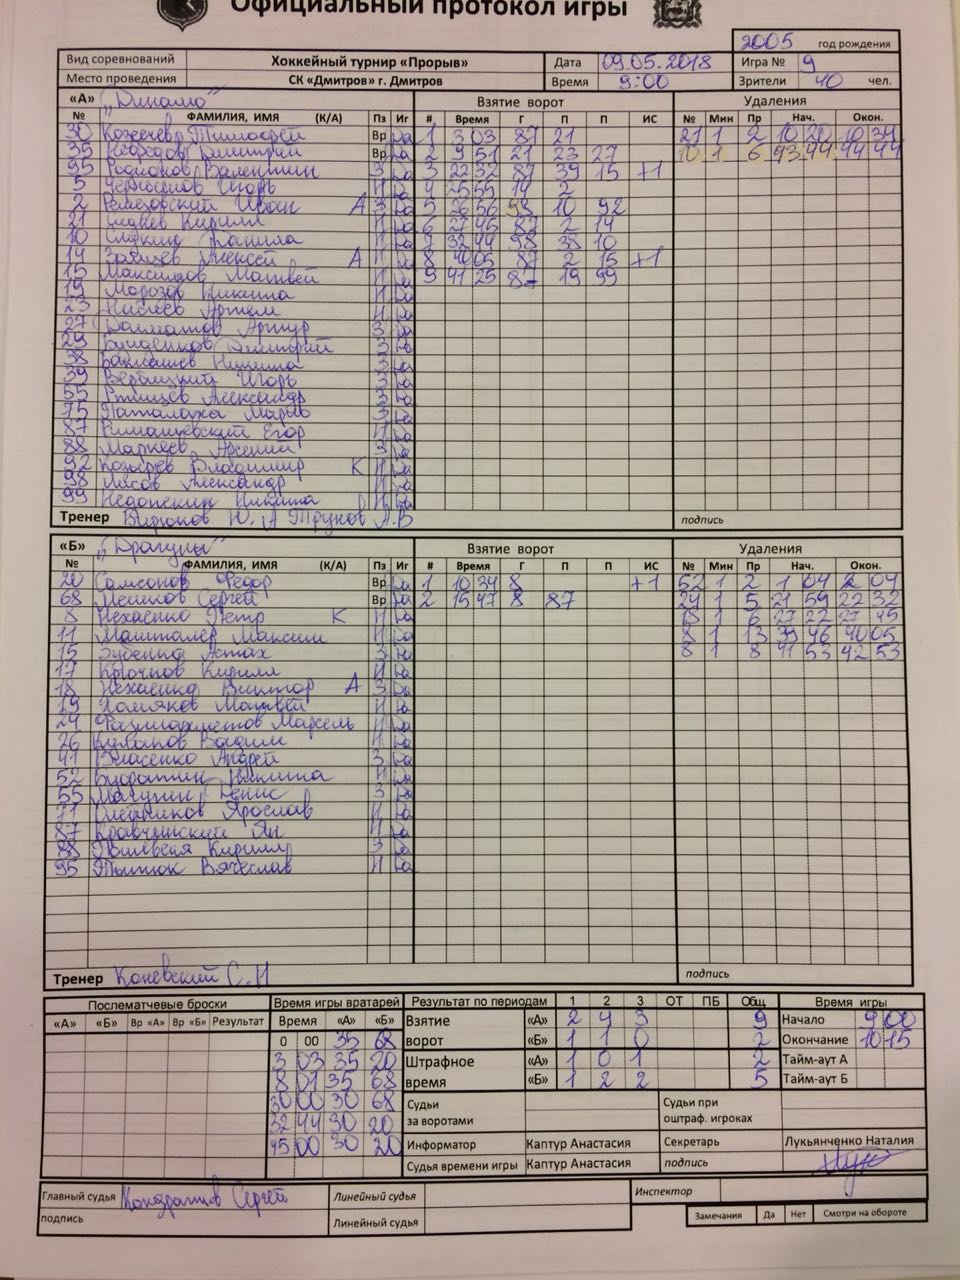 Официальный протокол игры
2005 год рождения
Вид соревнований Хоккейный турнир «Прорыв» Дата 09.05.2018 Игра № 9
Место проведения СК «Дмитров» г. Дмитров Время 9:00 Зрители 40 чел.
«А» "Динамо" Взятие ворот Удаления
№ ФАМИЛИЯ, ИМЯ (К/А) Пз Иг # Время Г П П ИС № Мин Пр Нач. Окон.
30 Тимофей Вр Да 1 3 03 87 21 21 1 2 10 20 10 34
35 Дмитрий Вр Да 2 9 51 21 23 27 10 1 6 43 44 44 44
95 Родионов Валентин З Да 3 22 32 87 39 15 +1
5 Чернышов Игорь Н Да 4 25 55 14 2
2 Ремезовский Иван А З Да 5 26 56 98 10 92
21 Кирилл Н Да 6 27 45 87 2 14
10 Данила Н Да 7 32 44 98 38 10
14 Зайцев Алексей А Н Да 8 40 05 87 2 15 +1
15 Максимов Матвей Н Да 9 41 25 87 19 99
19 Морозов Никита Н Да
23 Артем Н Да
27 Долматов Артур З Да
29 Дмитрий З Да
38 Никита З Да
39 Вербицкий Игорь З Да
55 Ртищев Александр З Да
75 Паталаха З Да
87 Рималиевский Егор Н Да
88 Маркеев Арсений З Да
92 Козырев Владимир К Н Да
98 Лисов Александр Н Да
99 Недопекин Никита Н Да
Тренер Бирюков Ю. А Трунов А.В подпись
«Б» "Драгуны" Взятие ворот Удаления
№ ФАМИЛИЯ, ИМЯ (К/А) Пз Иг # Время Г П П ИС № Мин Пр Нач. Окон.
20 Самсонов Федор Вр Да 1 10 34 8 +1 52 1 2 1 04 2 04
68 Мешков Сергей Вр Да 2 15 47 8 87 24 1 5 21 59 22 32
8 Нехаенко Петр К Н Да 18 1 6 27 22 27 45
11 Машталер Максим Н Да 8 1 13 39 46 40 05
15 Зубенко З Да 8 1 8 41 53 42 53
17 Крючков Кирилл Н Да
18 Нехаенко Виктор А З Да
19 Хомяков Матвей Н Да
24 Фазилахметов Марсель Н Да
26 Куланов Вадим Н Да
41 Власенко Андрей З Да
52 Никита Н Да
55 Денис З Да
71 Олейников Ярослав Н Да
87 Кравчинский Ян Н Да
88 Кирилл З Да
95 Тытюк Вячеслав Н Да
Тренер Коневский С.Н подпись
Послематчевые броски Время игры вратарей Результат по периодам 1 2 3 ОТ ПБ Общ Время игры
«А» «Б» Вр «А» Вр «Б» Результат Время «А» «Б» Взятие «А» 2 4 3 9 Начало 9 00
0 00 35 68 ворот «Б» 1 1 0 2 Окончание 10 15
3 03 35 20 Штрафное «А» 1 0 1 2 Тайм-аут А
8 01 35 68 время «Б» 1 2 2 5 Тайм-аут Б
30 00 30 68 Судьи за воротами Судьи при оштраф. игроках
32 44 30 20
45 00 30 20 Информатор Каптур Анастасия Секретарь Лукьянченко Наталия
Судья времени игры Каптур Анастасия подпись
Главный судья Кондратьев Сергей Линейный судья Инспектор
подпись Линейный судья Замечания Да Нет Смотри на обороте